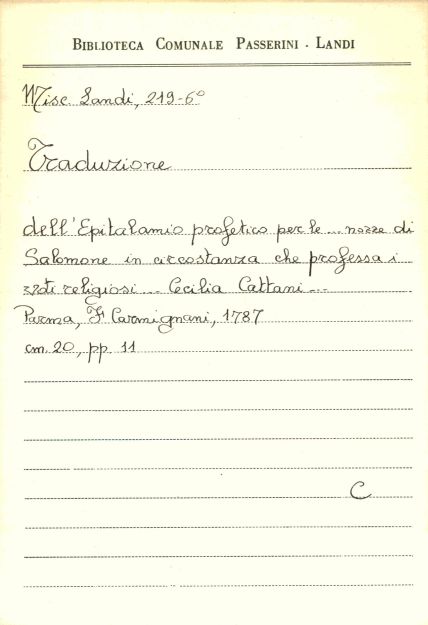 BIBLIOTECA COMUNALE PASSERINI - LANDI
Misc. Landi, 219-6º
Traduzione
dell'Epitalamio profetico per le ... nozze di
Salomone in circostanza che professa i
voti religiosi ... Cecilia Cattani ...
Parma, Fº Carmignani, 1787
cm. 20, pp. 11
C